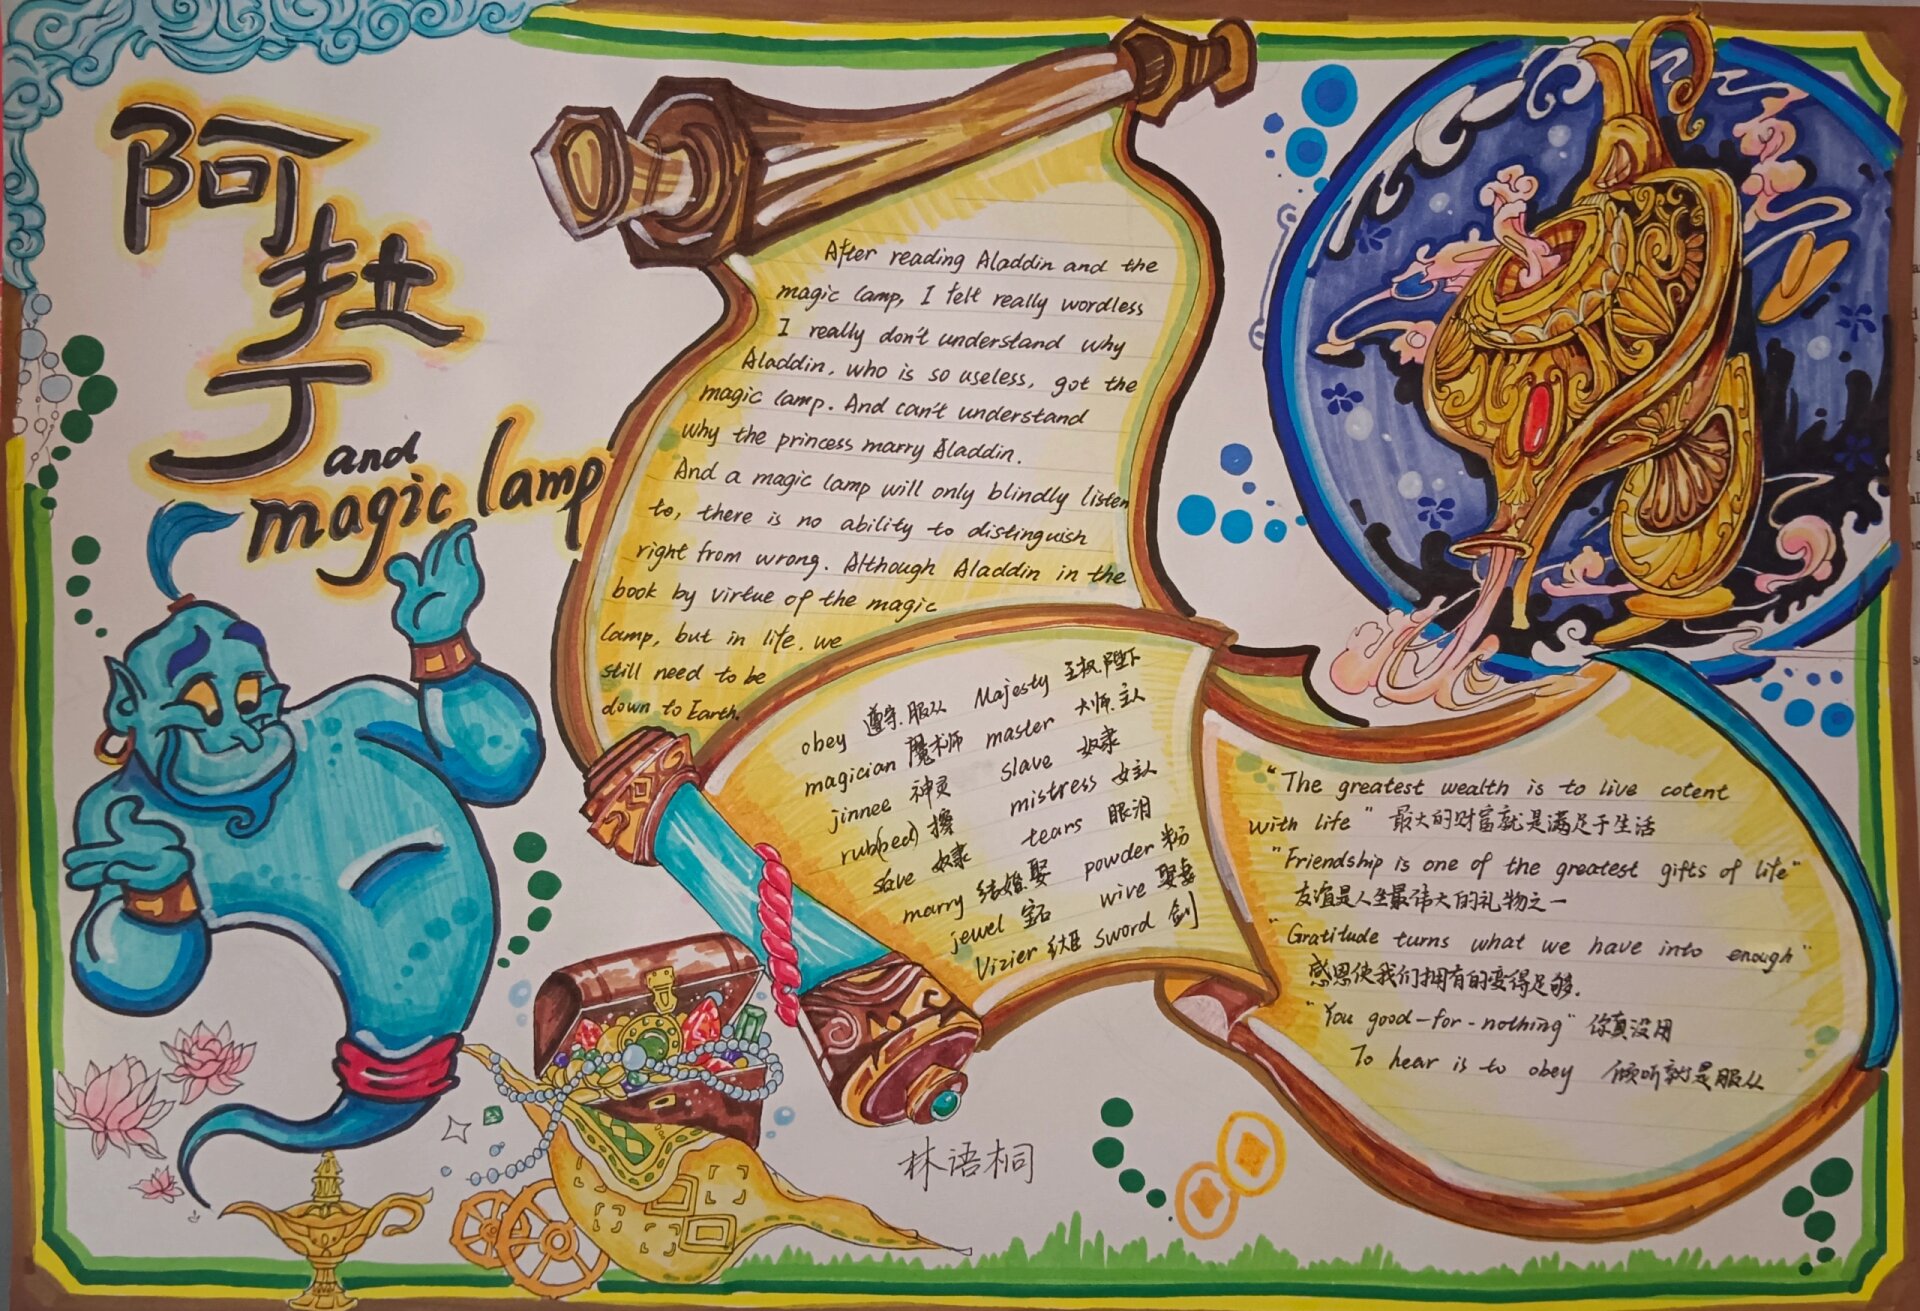 阿拉丁
and
magic lamp
After reading Aladdin and the
magic lamp, I felt really wordless
I really don't understand why
Aladdin, who is so useless, got the
magic lamp. And can't understand
why the princess marry Aladdin.
And a magic lamp will only blindly listen
to, there is no ability to distinguish
right from wrong. Although Aladdin in the
book by virtue of the magic
lamp, but in life, we
still need to be
down to Earth.
obey 遵守.服从 Majesty 王权.陛下
magician 魔术师 master 大师.主人
jinnee 神灵 slave 奴隶
rub(bed) 擦 mistress 女主人
slave 奴隶 tears 眼泪
marry 结婚.娶 powder 粉
jewel 宝石 wive 娶妻
Vizier 大臣 sword 剑
"The greatest wealth is to live cotent
with life" 最大的财富就是满足于生活
"Friendship is one of the greatest gifts of life"
友谊是人生最伟大的礼物之一
"Gratitude turns what we have into enough"
感恩使我们拥有的变得足够.
"You good-for-nothing" 你真没用
To hear is to obey 倾听就是服从
林语桐